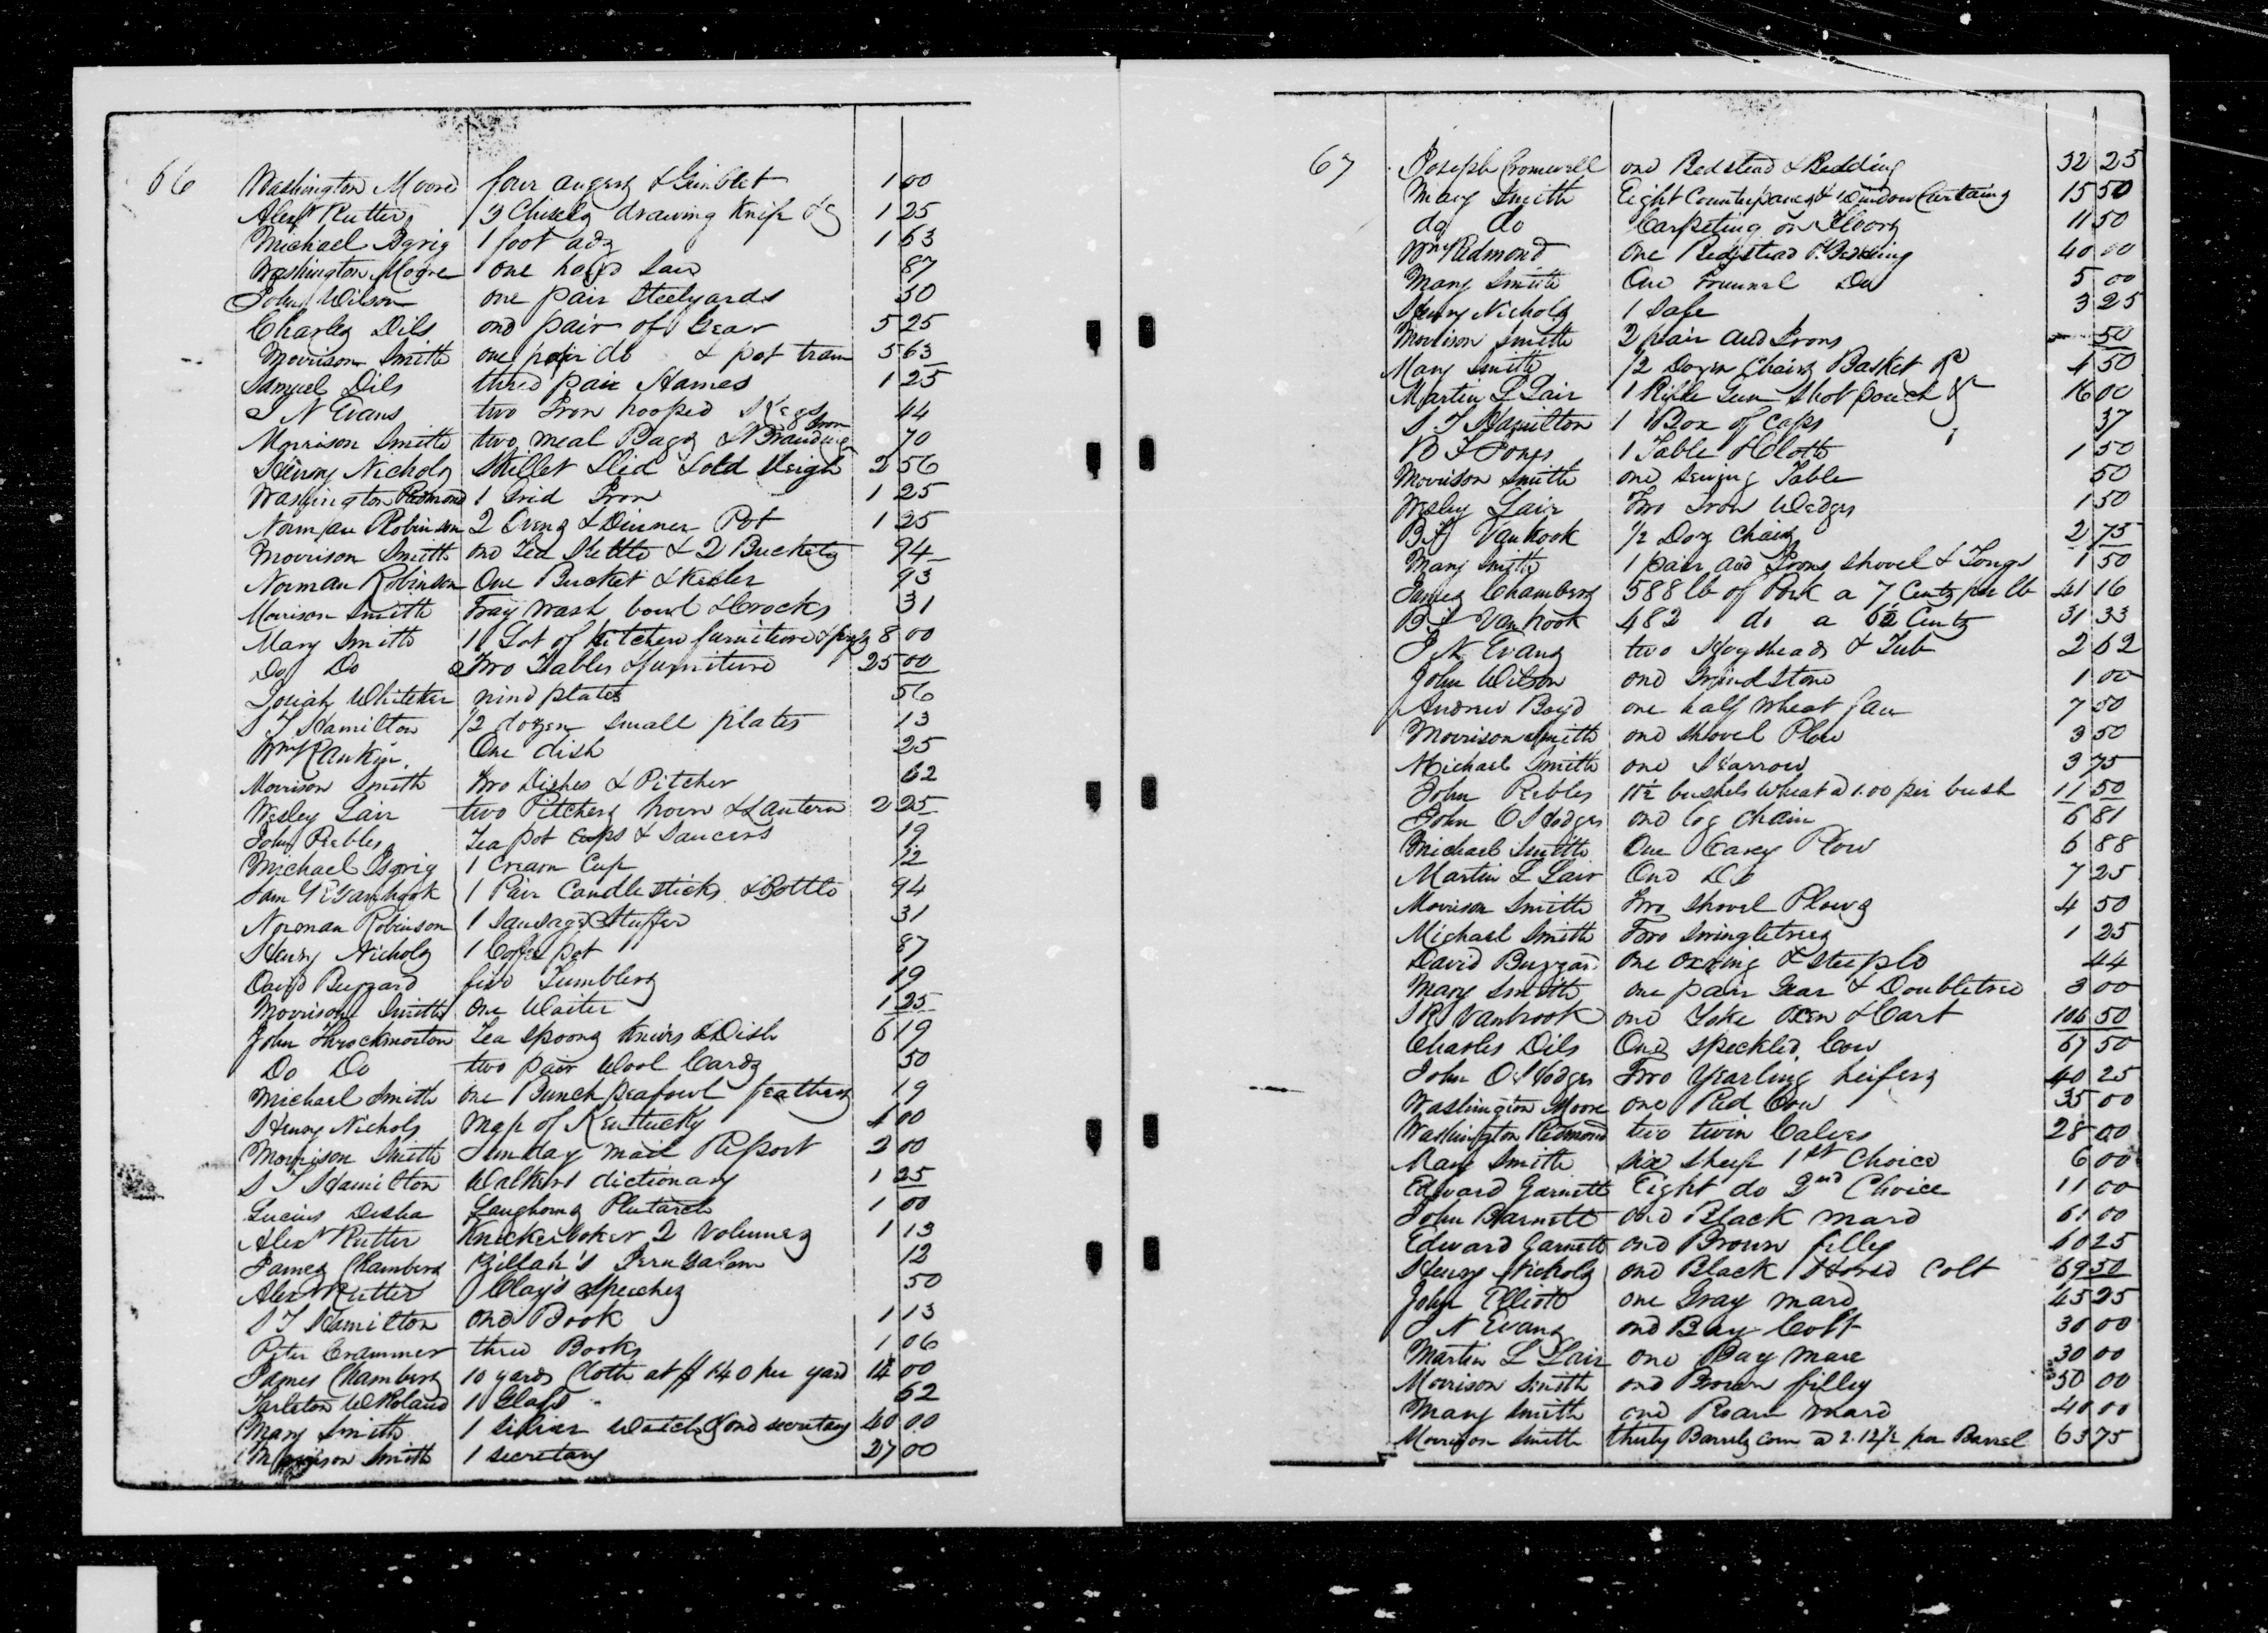 66
Washington Moore four augers & Gimblet 1 00
Alexr Rutter 3 Chisels drawing Knife &c 1 25
Michael Isgrig 1 foot adz 1 63
Washington Moore one hand saw 87
John Wilson one pair Steelyards 50
Charles Dils one pair of Gear 5 25
Morrison Smith one pair do & pot tram 5 63
Samuel Dils three pair Hames 1 25
J N Evans two Iron hooped Kegs 44
Morrison Smith two meal Bags & Branding Iron 70
Henry Nichols Skillet Lid & old Sleigh 2 56
Washington Redmond 1 Grid Iron 1 25
Norman Robinson 2 Ovens & Dinner Pot 1 25
Morrison Smith one Tea Kettle & 2 Buckets 94
Norman Robinson One Bucket & Keeler 93
Morrison Smith Tray wash bowl & Crocks 31
Mary Smith 1 Lot of kitchen furniture & 8 00
Do Do Two Tables & furniture 25 00
Josiah Whitaker nine plates 56
S T Hamilton 1/2 dozen small plates 13
Wm Rankin One dish 25
Morrison Smith Two Dishes & Pitcher 62
Wesley Lair two Pitchers horn & Lantern 2 25
John Peebles Tea pot cups & Saucers 19
Michael Isgrig 1 Cream Cup 12
Sam Vanhook 1 Pair Candlesticks & Bottle 94
Norman Robinson 1 Sausage Stuffer 31
Henry Nichols 1 Coffe pot 87
David Buzzard five Tumblers 19
Morrison Smith One Waiter 1 25
John Throckmorton Tea spoons Knives & Dish 6 19
Do Do two pair Wool Cards 50
Michael Smith one Bunch peafowl feathers 19
Henry Nichols Map of Kentucky 4 00
Morrison Smith Sunday mail Report 2 00
S T Hamilton Walkers dictionary 1 25
Lucius Desha Langhorns Plutarch 1 00
Alexr Rutter Knickerbocker 2 Volumes 1 13
James Chambers Zillah's Jerusalem 12
Alexr Rutter Clay's Speeches 50
S T Hamilton one Book 1 13
Peter Crammer three Books 1 06
James Chambers 10 yards Cloth at $ 1 40 per yard 14 00
Tarleton W Roland 1 Glass 62
Mary Smith 1 silver watch & one secretary 40 00
Morrison Smith 1 secretary 27 00
67
Joseph Cromwell one Bedstead & Bedding 32 25
Mary Smith Eight Counterpanes & Window Curtains 15 50
do do Carpeting on Floors 11 50
Wm Redmond One Bedstead & Bedding 40 00
Mary Smith One Trunnel Do 5 00
Henry Nichols 1 Safe 3 25
Morrison Smith 2 pair and Irons 50
Mary Smith 1/2 Dozen Chairs Basket 4 50
Martin L Lair 1 Rifle Gun Shot pouch &c 16 00
S T Hamilton 1 Box of Caps 37
B F Jones 1 Table & Cloth 1 50
Morrison Smith one sewing Table 50
Wesley Lair Two Iron Wedges 1 50
B F Vanhook 1/2 Doz Chairs 2 75
Mary Smith 1 pair and Irons shovel & Tongs 1 50
James Chambers 588 lb of Pork a 7 Cents per lb 41 16
B F Vanhook 482 do a 6½ Cents 31 33
J N Evans two Hogsheads & Tub 2 62
John Wilson one Grind Stone 1 00
Andrew Boyd one half wheat fan 7 50
Morrison Smith one shovel Plow 3 50
Michael Smith one Harrow 3 75
John Peebles 11½ bushels Wheat a 1.00 per bush 11 50
John O Hodges one log chain 6 81
Michael Smith One Carey Plow 6 88
Martin L Lair One Do 7 25
Morrison Smith Two shovel Plows 4 50
Michael Smith Two Swingletrees 1 25
David Buzzard One oxring & steeple 44
Mary Smith one pair Gear & Doubletree 3 00
R Vanhook one Yoke oxen & Cart 106 50
Charles Dils One speckled Cow 67 50
John O Hodges Two Yearling heifers 40 25
Washington Moore one Red Cow 35 00
Washington Redmond two twin Calves 28 00
Mary Smith six sheep 1st Choice 6 00
Edward Garnett Eight do 2nd Choice 11 00
John Barnett one Black mare 61 00
Edward Garnett one Brown filly 60 25
Henry Nichols one Black Horse Colt 69 50
John Elliott one Gray mare 45 25
J N Evans one Bay Colt 30 00
Martin L Lair one Bay mare 30 00
Morrison Smith one Brown filley 50 00
Mary Smith one Roan mare 40 00
Morrison Smith thirty Barrels corn a 2.12½ per Barrel 63 75